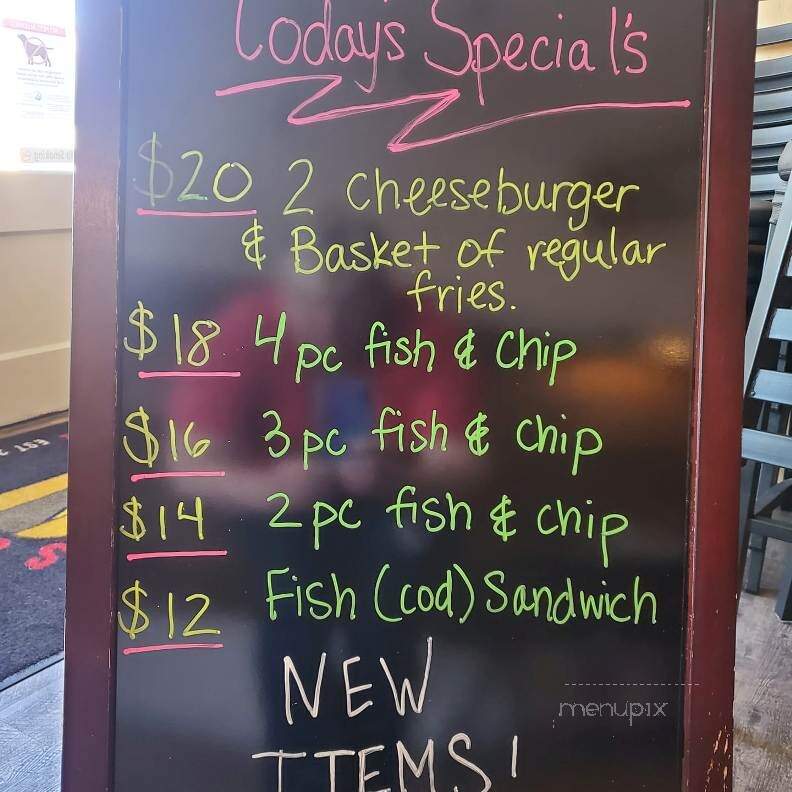 Today's Special's
$20 2 cheeseburger
& Basket of regular
fries.
$18 4 pc fish & chip
$16 3 pc fish & chip
$14 2 pc fish & chip
$12 Fish (cod) Sandwich
NEW
ITEMS!
menupix